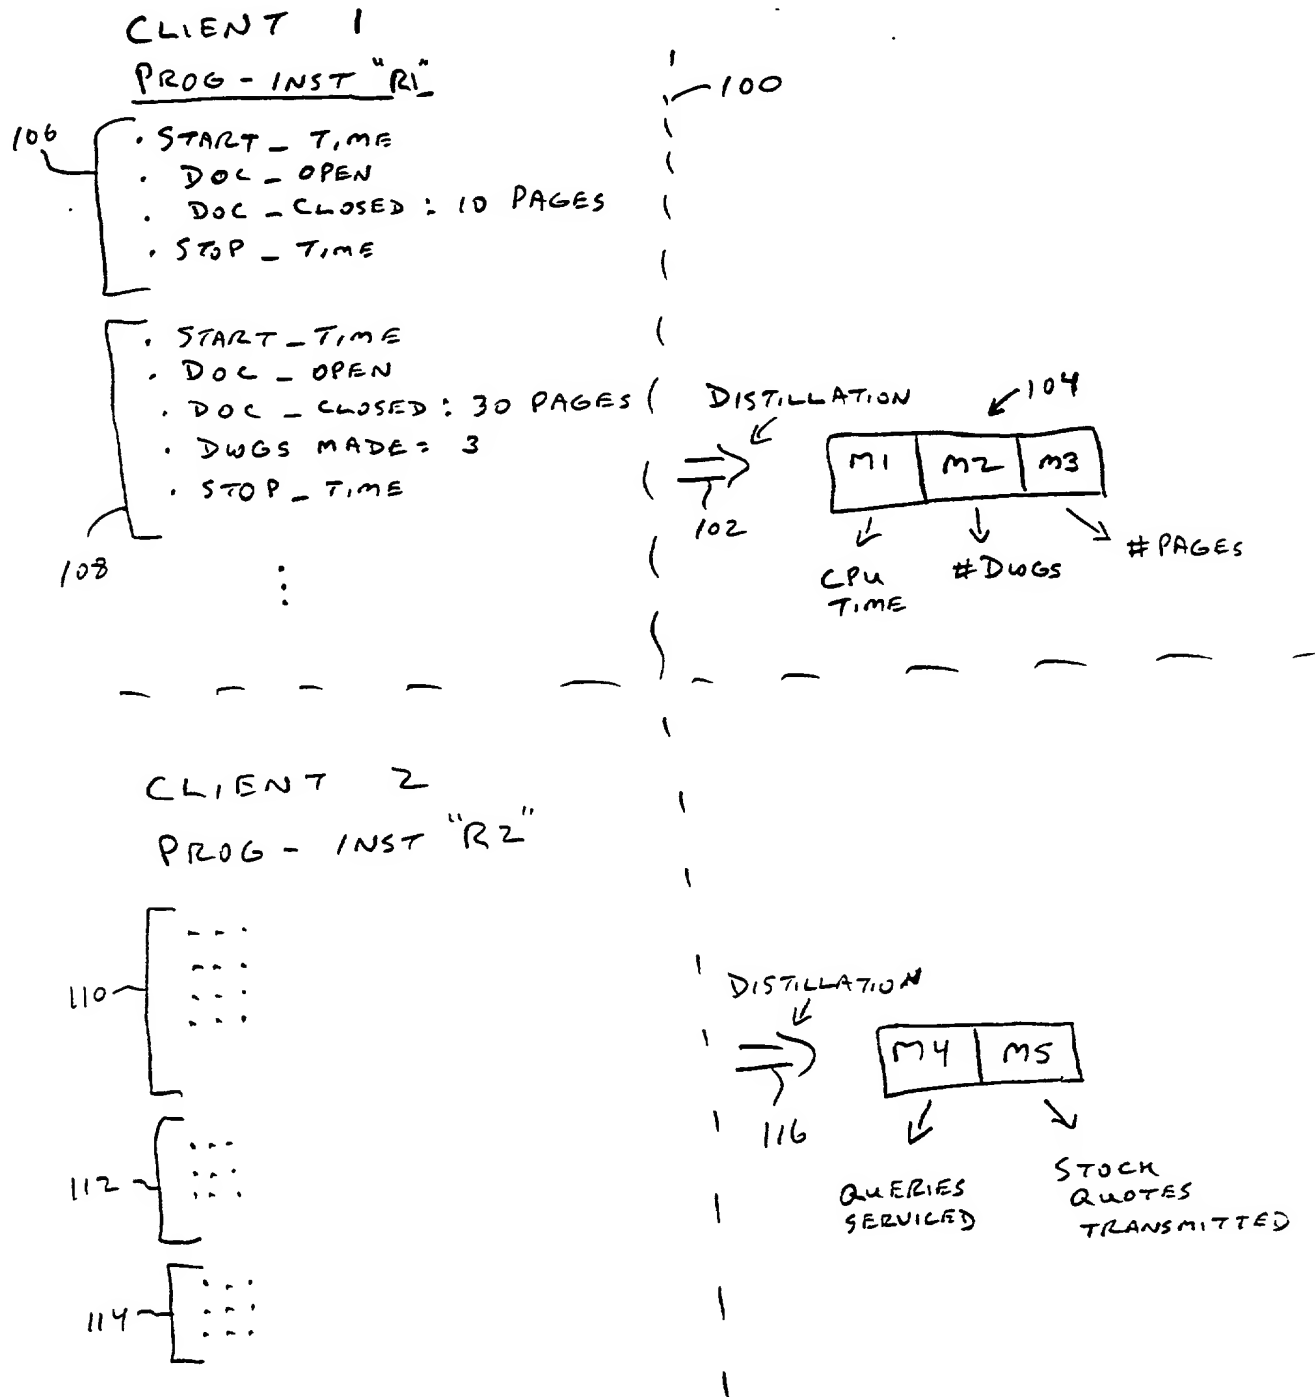 CLIENT 1
PROG - INST "R1"
100
106
. START _ TIME
. DOC _ OPEN
. DOC _ CLOSED : 10 PAGES
. STOP _ TIME
. START _ TIME
. DOC _ OPEN
. DOC _ CLOSED : 30 PAGES
. DWGS MADE = 3
. STOP _ TIME
108
DISTILLATION
104
M1 M2 M3
102
CPU TIME
#DWGS
#PAGES
CLIENT 2
PROG - INST "R2"
110
112
114
DISTILLATION
M4 M5
116
QUERIES
SERVICED
STOCK
QUOTES
TRANSMITTED